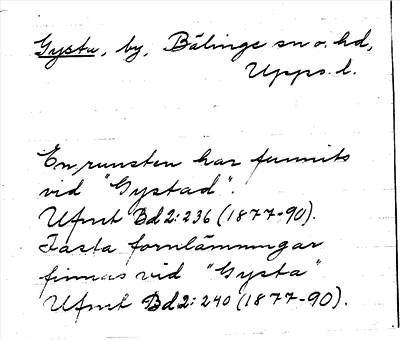 Gysta, by, Bälinge sn o. hd,
Upps. l.
En runsten har funnits
vid "Gystad".
Ufmt Bd 2: 236 (1877-90).
Fasta fornlämningar
finnas vid "Gysta"
Ufmt Bd 2: 240 (1877-90).